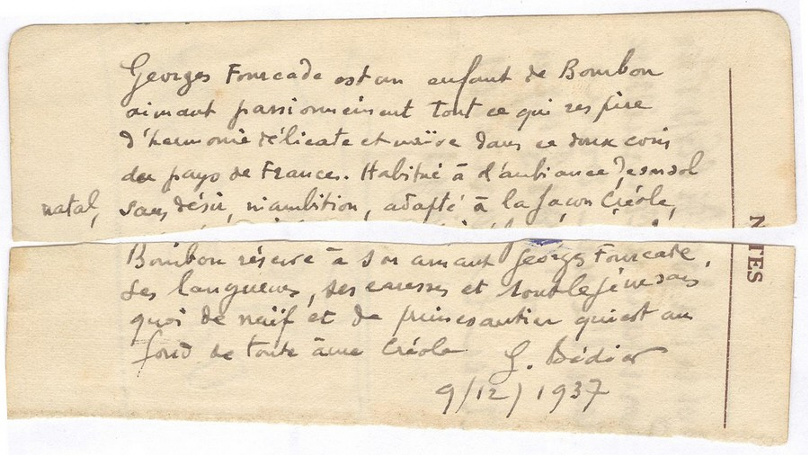 Georges Fourcade est un enfant de Bourbon
aimant passionnément tout ce qui respire
d'harmonie délicate et naïve dans ce doux coin
du pays de France. Habitué à l'ambiance de son sol
natal, sans désir, ni ambition, adapté à la façon Créole,
Bourbon réserve à son amant Georges Fourcade,
ses langueurs, ses caresses et tout le je ne sais
quoi de naïf et de primesautier qui est au
fond de toute âme Créole G. Bédier
9/12/1937
NOTES